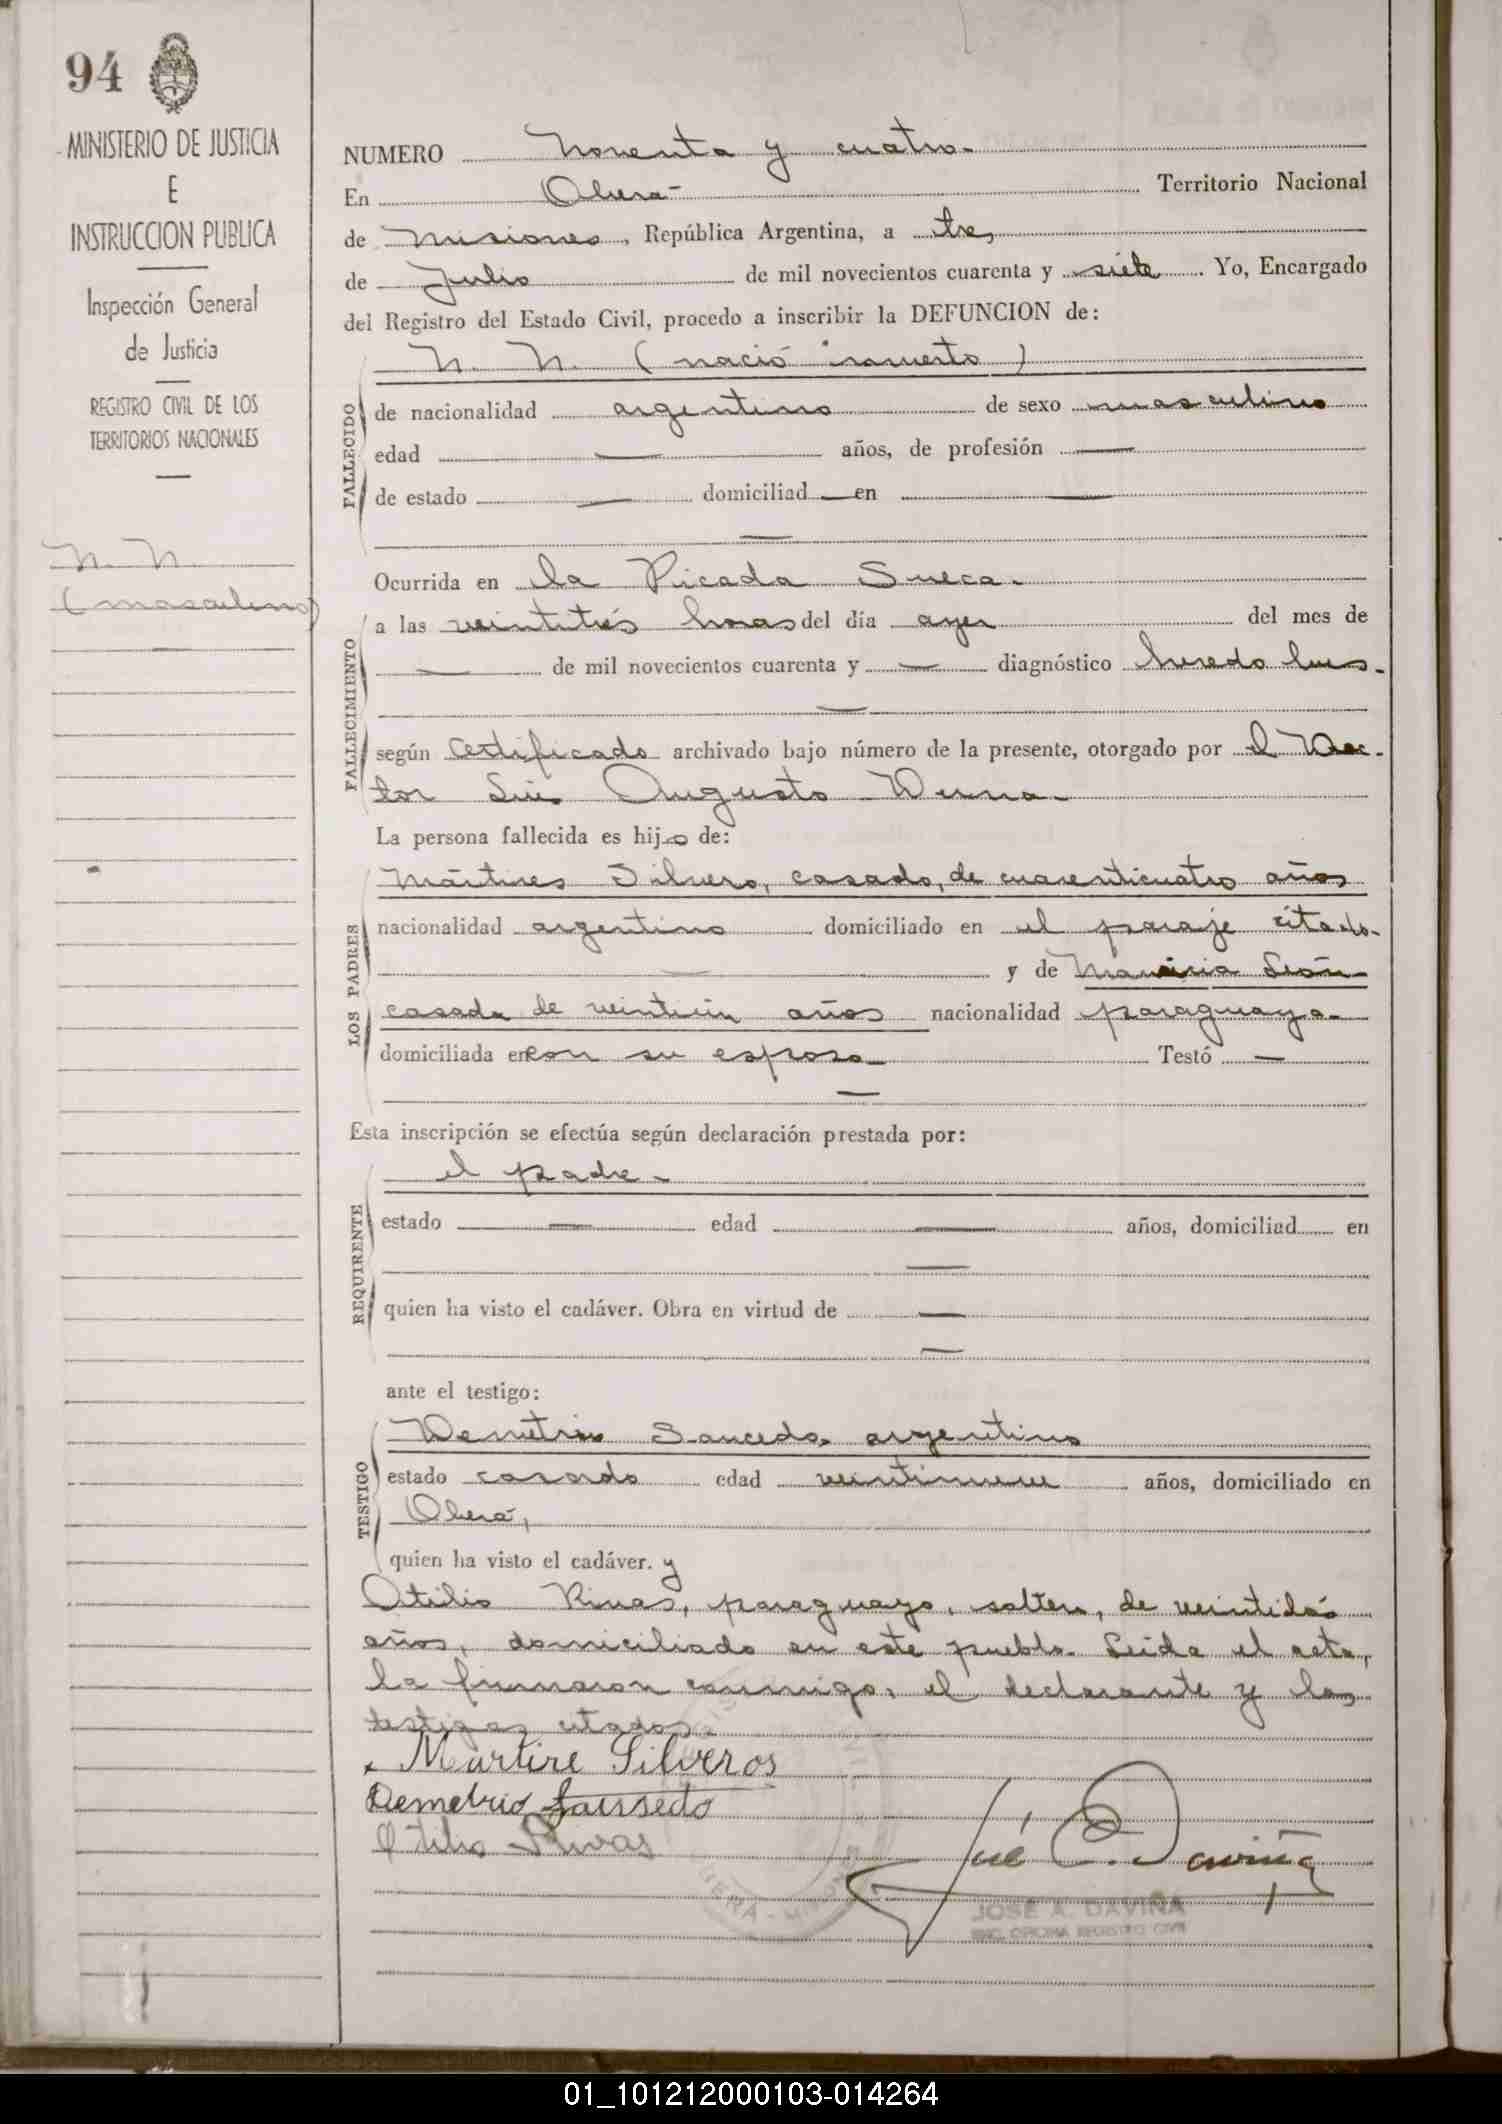 94
MINISTERIO DE JUSTICIA
E
INSTRUCCION PUBLICA
Inspección General
de Justicia
REGISTRO CIVIL DE LOS
TERRITORIOS NACIONALES
N. N.
(masculino)
NUMERO Noventa y cuatro.
En Oberá Territorio Nacional
de Misiones, República Argentina, a tres
de Julio de mil novecientos cuarenta y siete. Yo, Encargado
del Registro del Estado Civil, procedo a inscribir la DEFUNCION de:
N. N. (nació muerto)
FALLECIDO
de nacionalidad argentino de sexo masculino
edad — años, de profesión —
de estado — domiciliad — en —
—
Ocurrida en la Picada Sueca.
FALLECIMIENTO
a las veintitrés horas del día ayer del mes de
— de mil novecientos cuarenta y — diagnóstico heredo lues.
—
según certificado archivado bajo número de la presente, otorgado por el Doc-
tor Luis Augusto
La persona fallecida es hijo de:
LOS PADRES
Mártires Silvero, casado, de cuarenticuatro años
nacionalidad argentino domiciliado en el paraje citado.
— y de León
casada de veintiún años nacionalidad paraguaya.
domiciliada en con su esposo Testó —
—
Esta inscripción se efectúa según declaración prestada por:
REQUIRENTE
el padre.
estado — edad — años, domiciliad en
—
quien ha visto el cadáver. Obra en virtud de —
—
ante el testigo:
TESTIGO
Demetrio Saucedo, argentino
estado casado edad veintinueve años, domiciliado en
Oberá,
quien ha visto el cadáver. y
Otilio Rivas, paraguayo, soltero, de veintidós
años, domiciliado en este pueblo. Leída el acta,
la firmaron conmigo, el declarante y los
testigos citados.
Martire Silveros
Demetrio Saussedo
Otilio Rivas
José A. Daviña
OBERA - MISIONES
JOSE A. DAVIÑA
ENC. OFICINA REGISTRO CIVIL
01_101212000103-014264